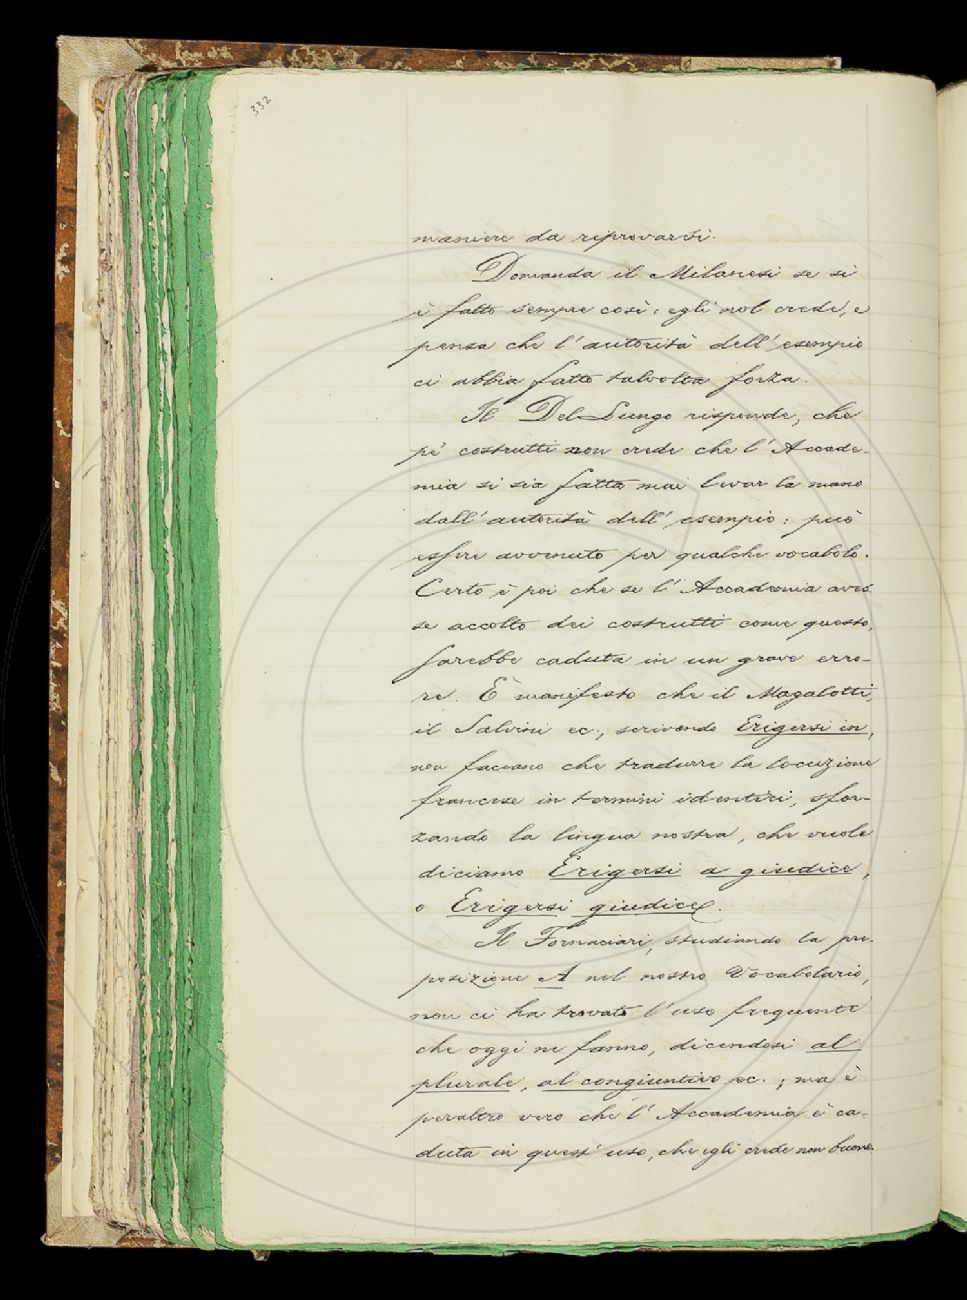 332
maniere da riprovarsi.
Domanda il Milanesi se si
è fatto sempre così: egli nol crede, e
pensa che l'autorità dell'esempio
ci abbia fatto talvolta forza.
Il Del Lungo risponde, che
pe' costrutti non crede che l'Accade-
mia si sia fatta mai levar la mano
dall'autorità dell'esempio: può
essere avvenuto per qualche vocabolo.
Certo è poi che se l'Accademia aves
se accolto dei costrutti come questo,
sarebbe caduta in un grave erro-
re. È manifesto che il Magalotti,
il Salvini ec., scrivendo Erigersi in,
non faceano che tradurre la locuzione
francese in termini identici, sfor-
zando la lingua nostra, che vuole
diciamo Erigersi a giudice,
o Erigersi giudice.
Il Fornaciari, studiando la pre-
posizione A nel nostro Vocabolario,
non ci ha trovato l'uso frequente
che oggi ne fanno, dicendosi al
plurale, al congiuntivo ec.; ma è
peraltro vero che l'Accademia è ca-
duta in quest'uso, che egli crede non buono.